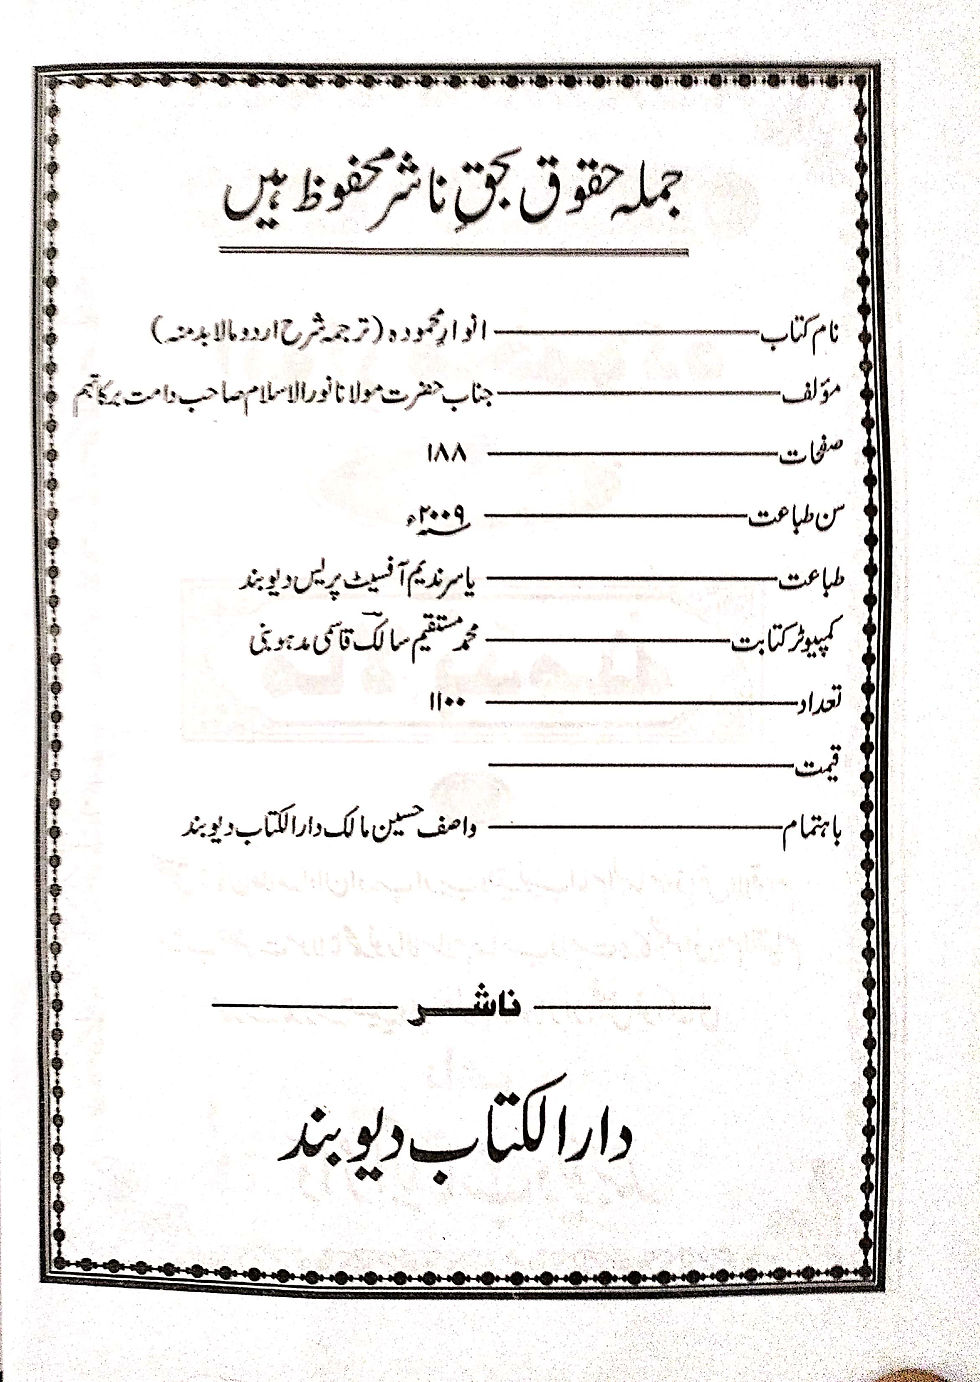 جملہ حقوق بحقِ ناشر محفوظ ہیں
نام کتاب ــــــ انوارِ محمودہ (ترجمہ شرح اردو مالا بد منہ)
مؤلف ــــــ جناب حضرت مولانا نور الاسلام صاحب دامت برکاتہم
صفحات ــــــ ۱۸۸
سن طباعت ــــــ ۲۰۰۹ء
طباعت ــــــ یاسر ندیم آفسیٹ پریس دیوبند
کمپیوٹر کتابت ــــــ محمد مستقیم سالک قاسمی مدہوبنی
تعداد ــــــ ۱۱۰۰
قیمت ــــــ
باہتمام ــــــ واصف حسین مالک دارالکتاب دیوبند
ناشر
دارالکتاب دیوبند